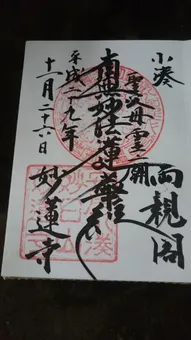 小湊
両親閣
聖父母霊?開
南無妙法蓮華経
平成二十九年
十一月二十六日
妙蓮寺